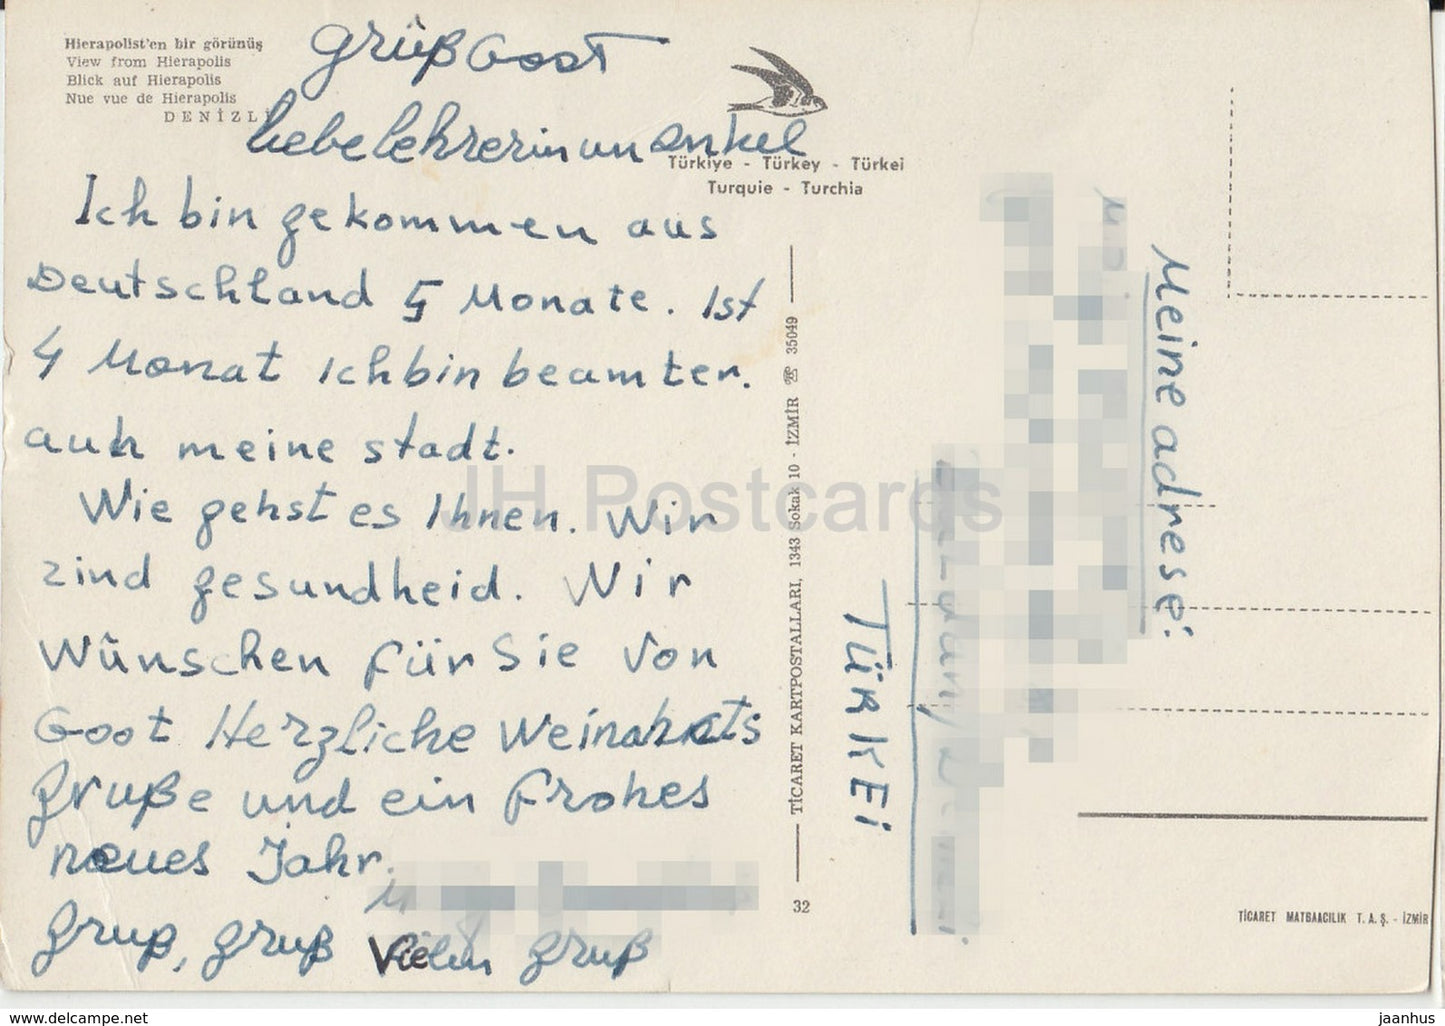 Hierapolist'en bir görünüş
View from Hierapolis
Blick auf Hierapolis
Nue vue de Hierapolis
DENİZLİ
Grüß Goot
liebe lehrerin un onkel
Türkiye - Türkey - Türkei
Turquie - Turchia
Ich bin gekommen aus
Deutschland 5 Monate. Ist
4 Monat Ich bin beamter.
auh meine stadt.
Wie gehst es Ihnen. Wir
zind gesundheid. Wir
Wünschen für Sie von
Goot Herzliche Weinahcts
gruße und ein frohes
neues Jahr.
gruß, gruß Vielen gruß
TİCARET KARTPOSTALLARI, 1343 Sokak 10 - İZMİR ☏ 35049
32
Meine adrese:
TÜRKEi
TİCARET MATBAACILIK T. A. Ş. - İZMİR
JH Postcards
www.delcampe.net
jaanhus